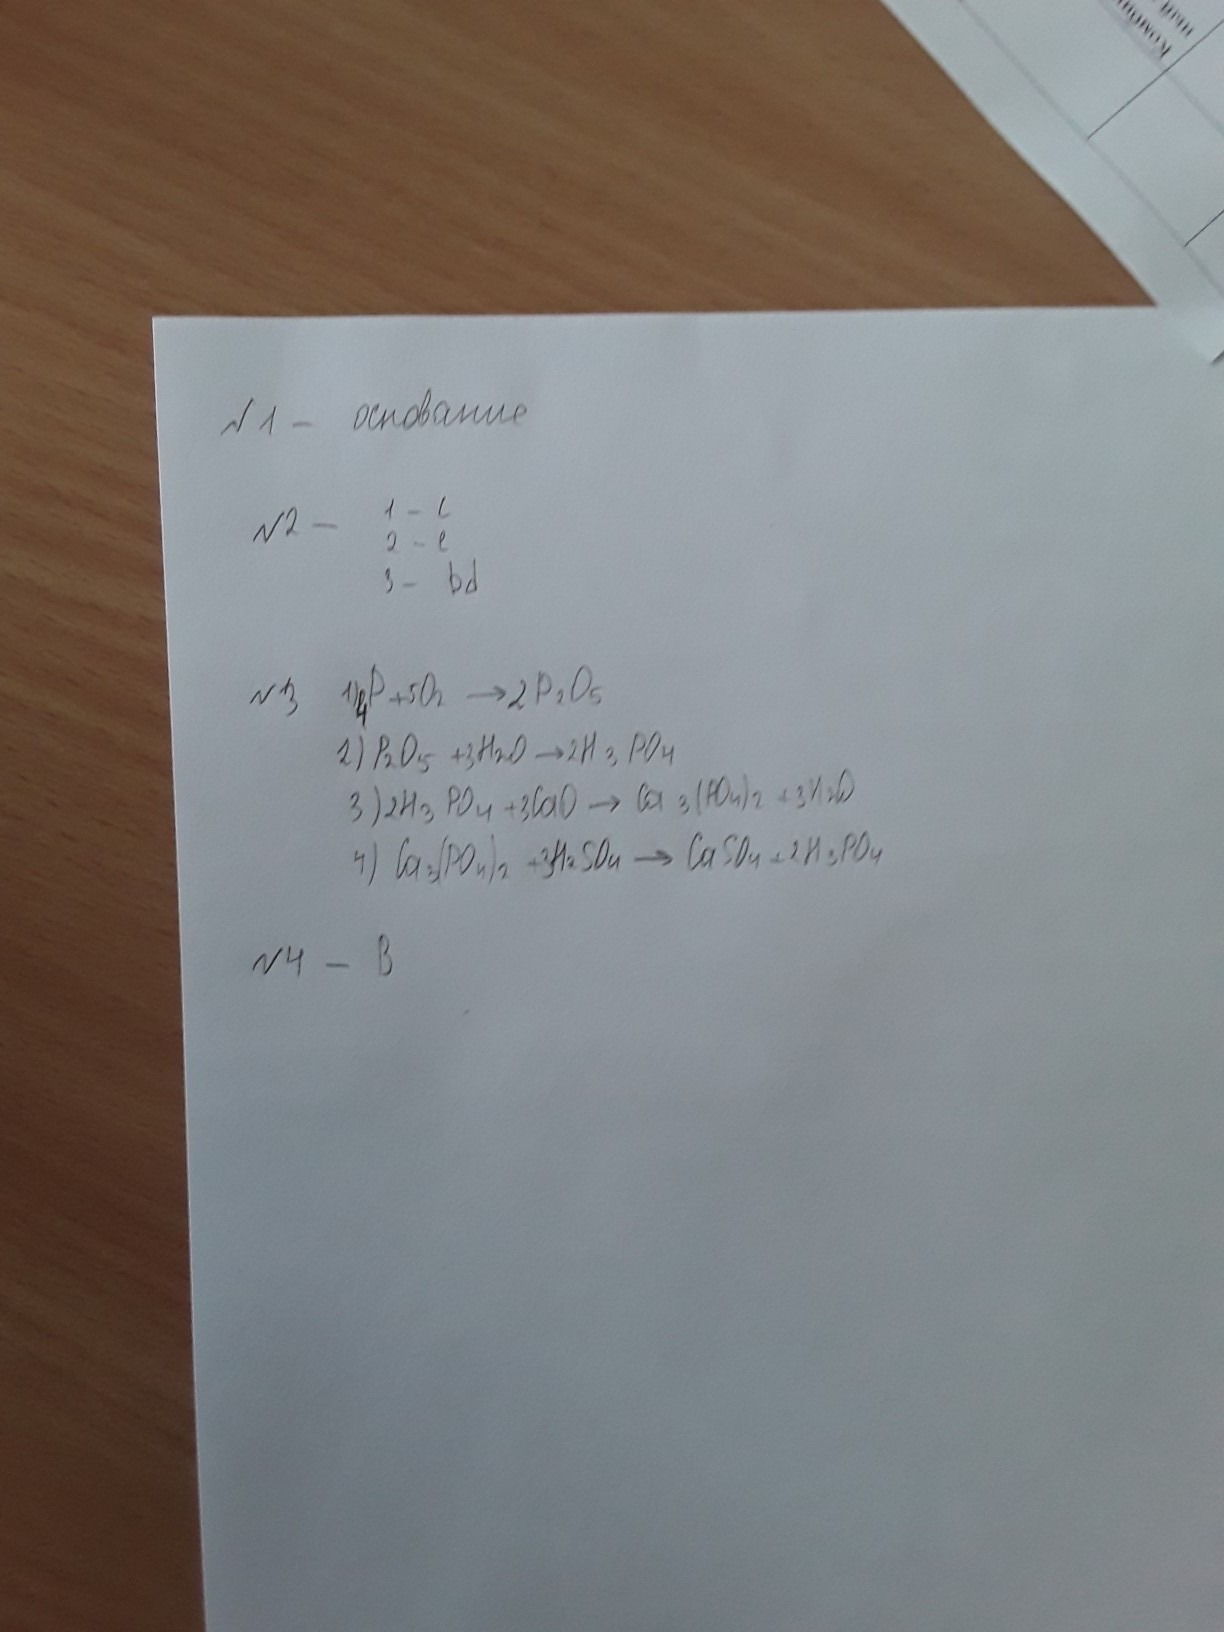 Комби
ный
№1 – основание
№2 – 1 – c
2 – e
3 – bd
№3 1) 4P + 5O₂ → 2P₂O₅
2) P₂O₅ + 3H₂O → 2H₃PO₄
3) 2H₃PO₄ + 3CaO → Ca₃(PO₄)₂ + 3H₂O
4) Ca₃(PO₄)₂ + 3H₂SO₄ → CaSO₄ + 2H₃PO₄
№4 – B